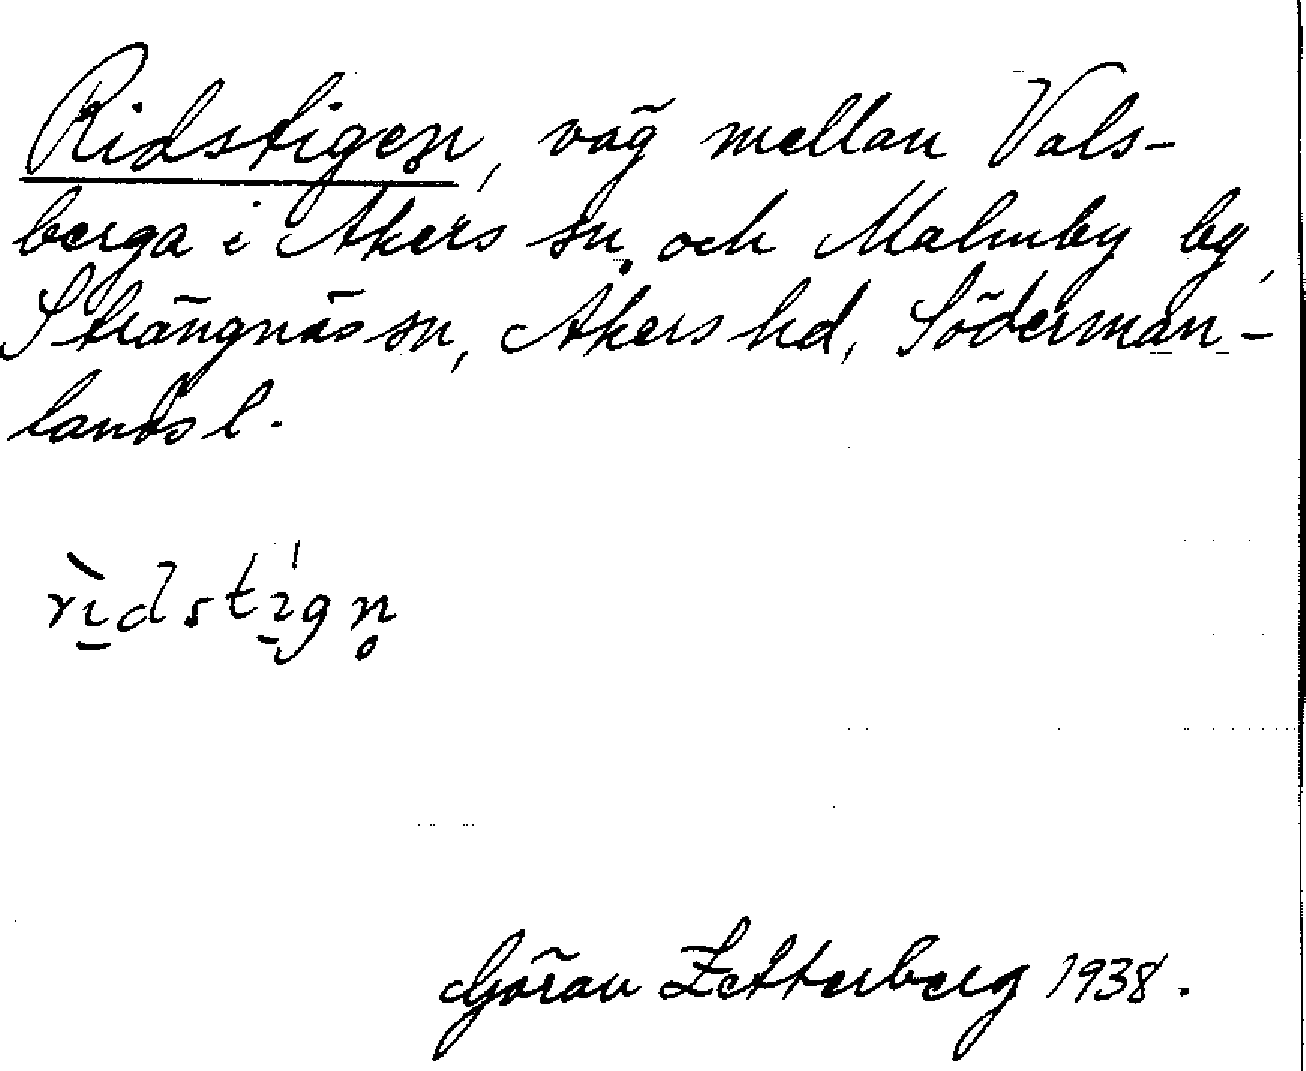 Ridstigen, väg mellan Vals-
berga i Åkers sn. och Malmby by,
Strängnäs sn, Åkers hd, Söderman-
lands l.
rìdstign̥
Göran Zetterberg 1938.